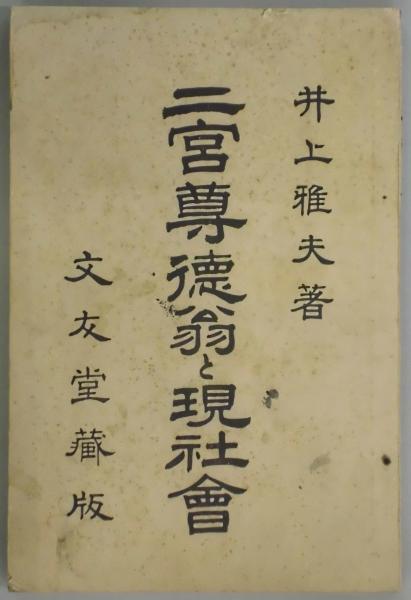 井上雅夫著
二宮尊德翁と現社會
文友堂藏版